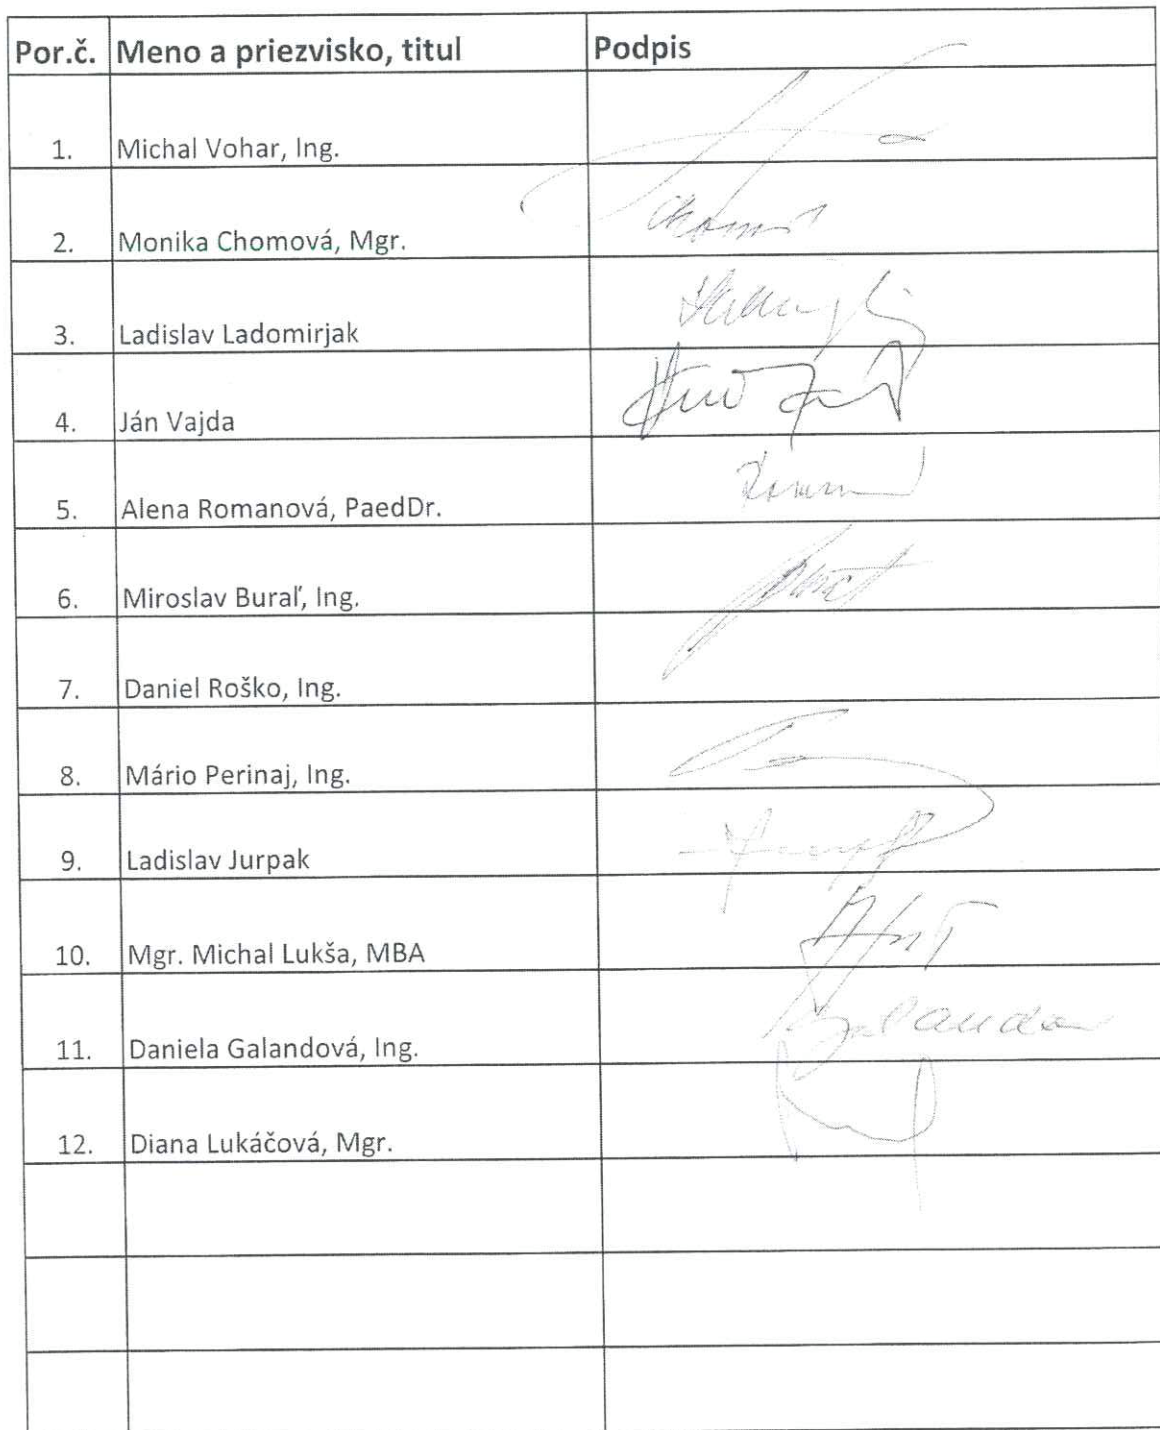 Por.č. Meno a priezvisko, titul Podpis
1. Michal Vohar, Ing.
2. Monika Chomová, Mgr.
3. Ladislav Ladomirjak
4. Ján Vajda
5. Alena Romanová, PaedDr.
6. Miroslav Buraľ, Ing.
7. Daniel Roško, Ing.
8. Mário Perinaj, Ing.
9. Ladislav Jurpak
10. Mgr. Michal Lukša, MBA
11. Daniela Galandová, Ing.
12. Diana Lukáčová, Mgr.